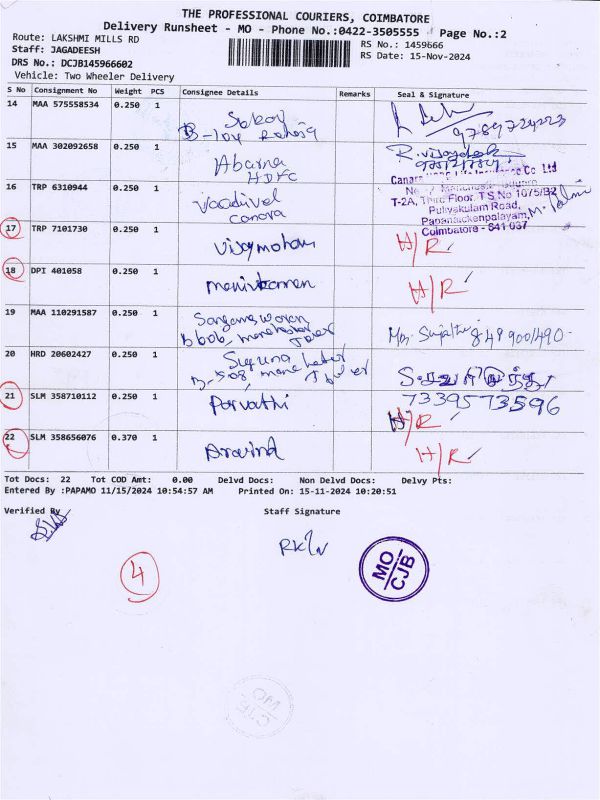 THE PROFESSIONAL COURIERS, COIMBATORE
Delivery Runsheet - MO - Phone No.:0422-3505555 Page No.:2
Route: LAKSHMI MILLS RD
RS No.: 1459666
Staff: JAGADEESH
RS Date: 15-Nov-2024
DRS No.: DCJB145966602
Vehicle: Two Wheeler Delivery
S No Consignment No Weight PCS Consignee Details Remarks Seal & Signature
14 MAA 575558534 0.250 1
B-104
9789724223
15 MAA 302092658 0.250 1 Abarna
HDFC
16 TRP 6310944 0.250 1 Vadivel
canara
Canara Life Insurance Co Ltd
Manchester Square
T-2A, Third Floor, T.S No 1075/B2
Puliyakulam Road,
Papanaickenpalayam,
Coimbatore - 641 037
17 TRP 7101730 0.250 1 Vijaymohan H/R
18 DPI 401058 0.250 1 manikamen H/R
19 MAA 110291587 0.250 1
8489001490
20 HRD 20602427 0.250 1 Suguna
7339573596
21 SLM 358710112 0.250 1 Parvathi H/R
22 SLM 358656076 0.370 1 Aravind H/R
Tot Docs: 22 Tot COD Amt: 0.00 Delvd Docs: Non Delvd Docs: Delvy Pts:
Entered By :PAPAMO 11/15/2024 10:54:57 AM Printed On: 15-11-2024 10:20:51
Verified By Staff Signature
4
MO
CJB